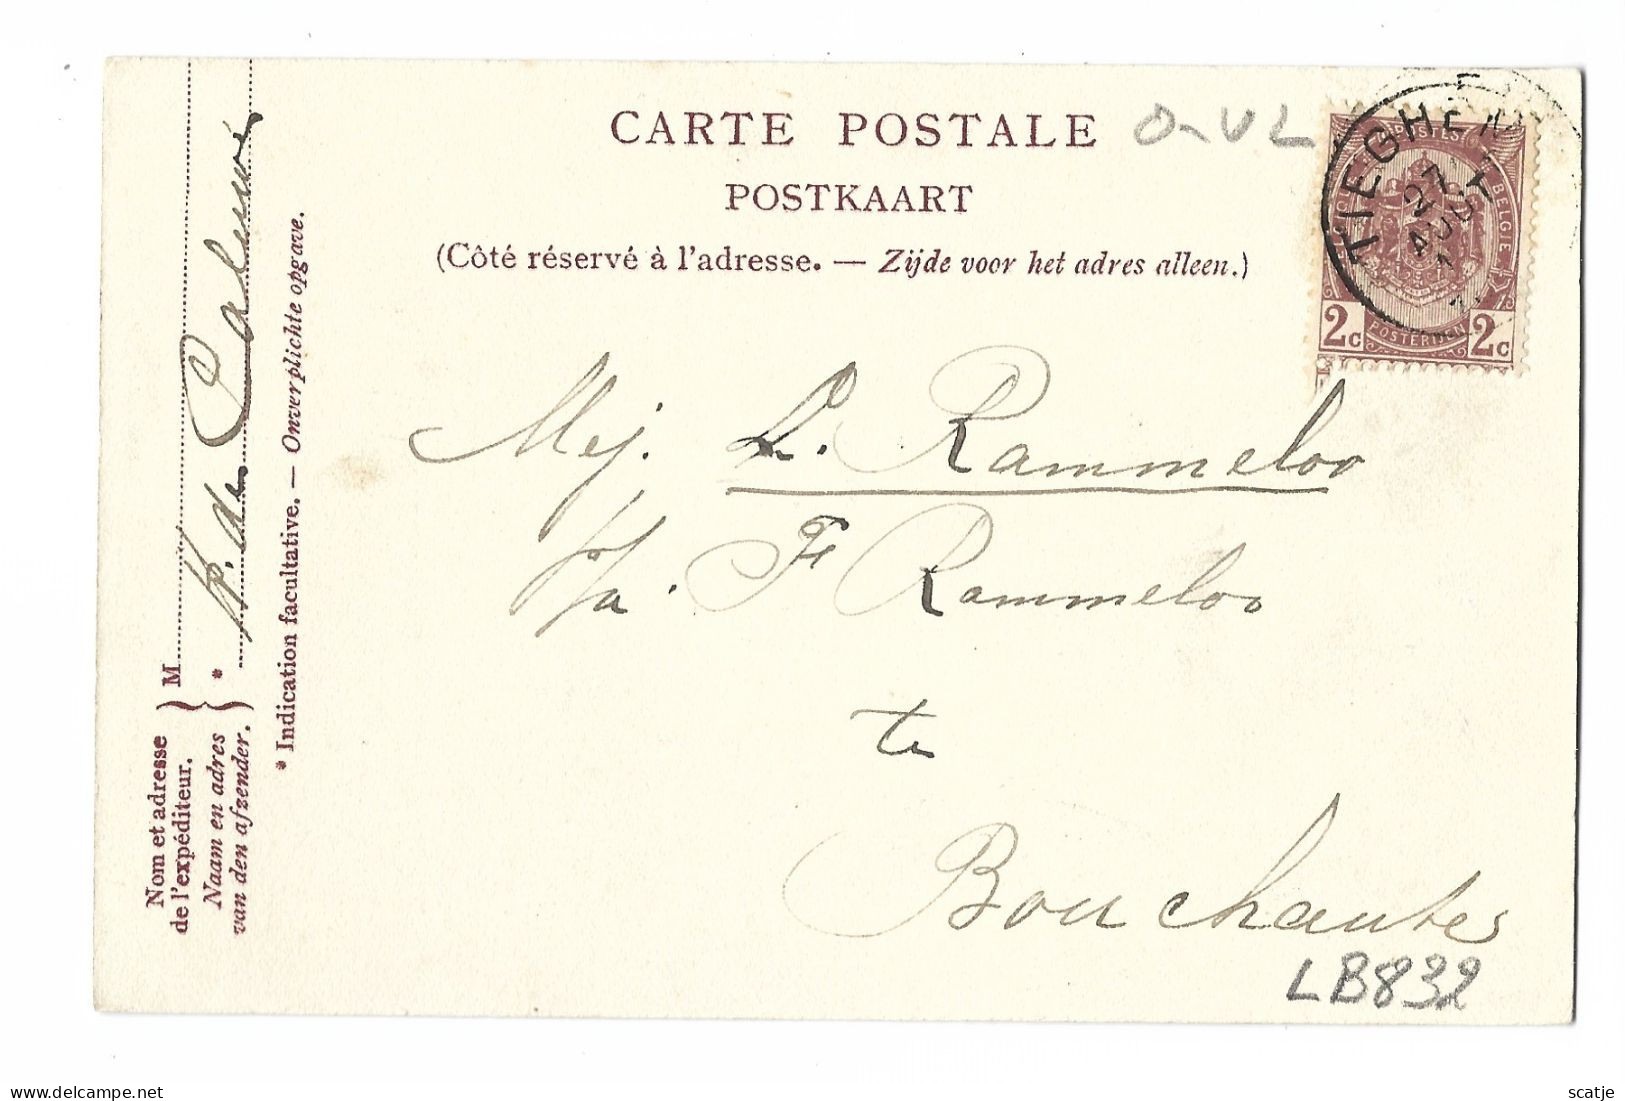 CARTE POSTALE
O-VL
POSTKAART
(Côté réservé à l'adresse. — Zijde voor het adres alleen.)
TIEGHEM
27
AOUT
POSTES BELGIE
2c POSTERIJEN 2c
Mej. L. Rammeloo
p/a. F Rammeloo
te
Bouchaute
LB832
Nom et adresse
de l'expéditeur.
M
Naam en adres
van den afzender.
*
* Indication facultative. — Onverplichte opgave.
scatje